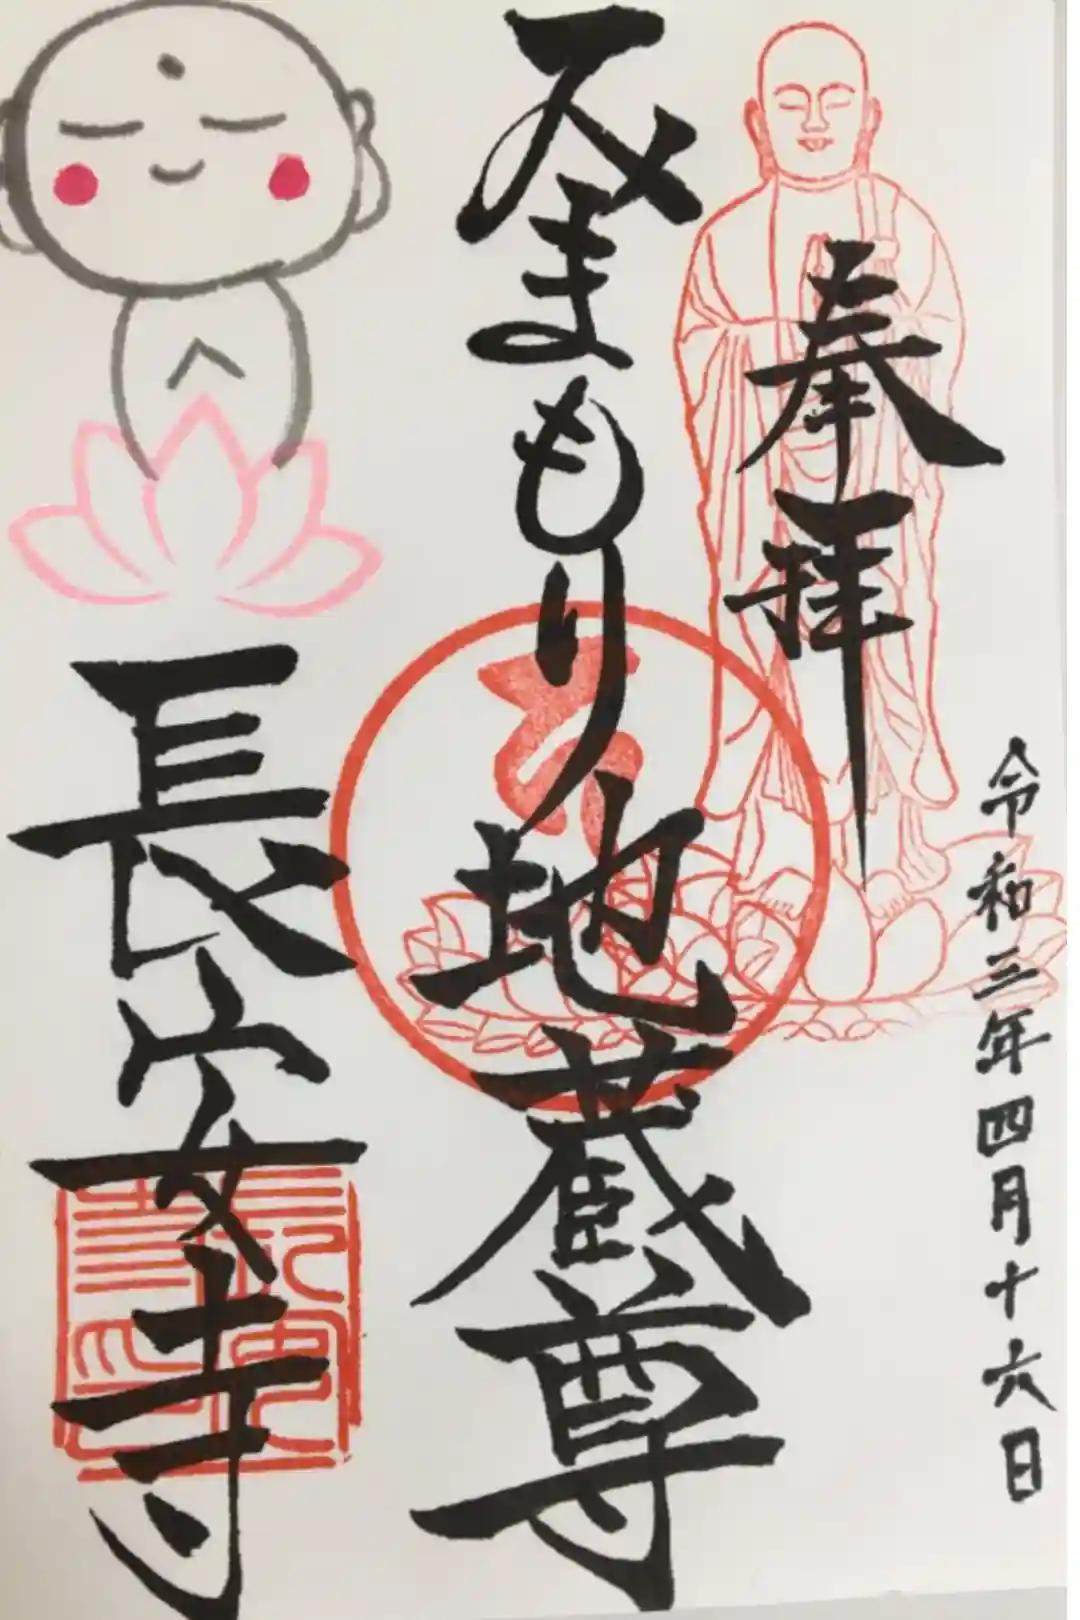 奉拝
令和三年四月十六日
みまもり地蔵尊
長安寺